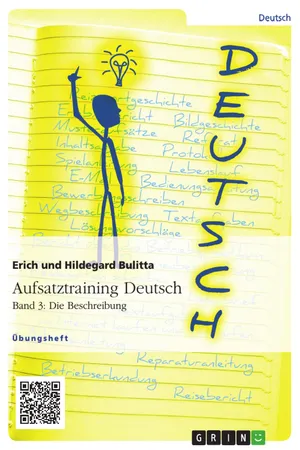 Deutsch
DEUTSCH
Bildgeschichte
Referat
Inhaltsangabe
Protokoll
Spielanleitung
Lebenslauf
E-Mail
Bedienungsanleitung
Bewerbungsschreiben
Wegbeschreibung
Lösungsvorschläge
Erich und Hildegard Bulitta
Aufsatztraining Deutsch
Band 3: Die Beschreibung
Übungsheft
Reparaturanleitung
Betriebserkundung
Reisebericht
GRIN